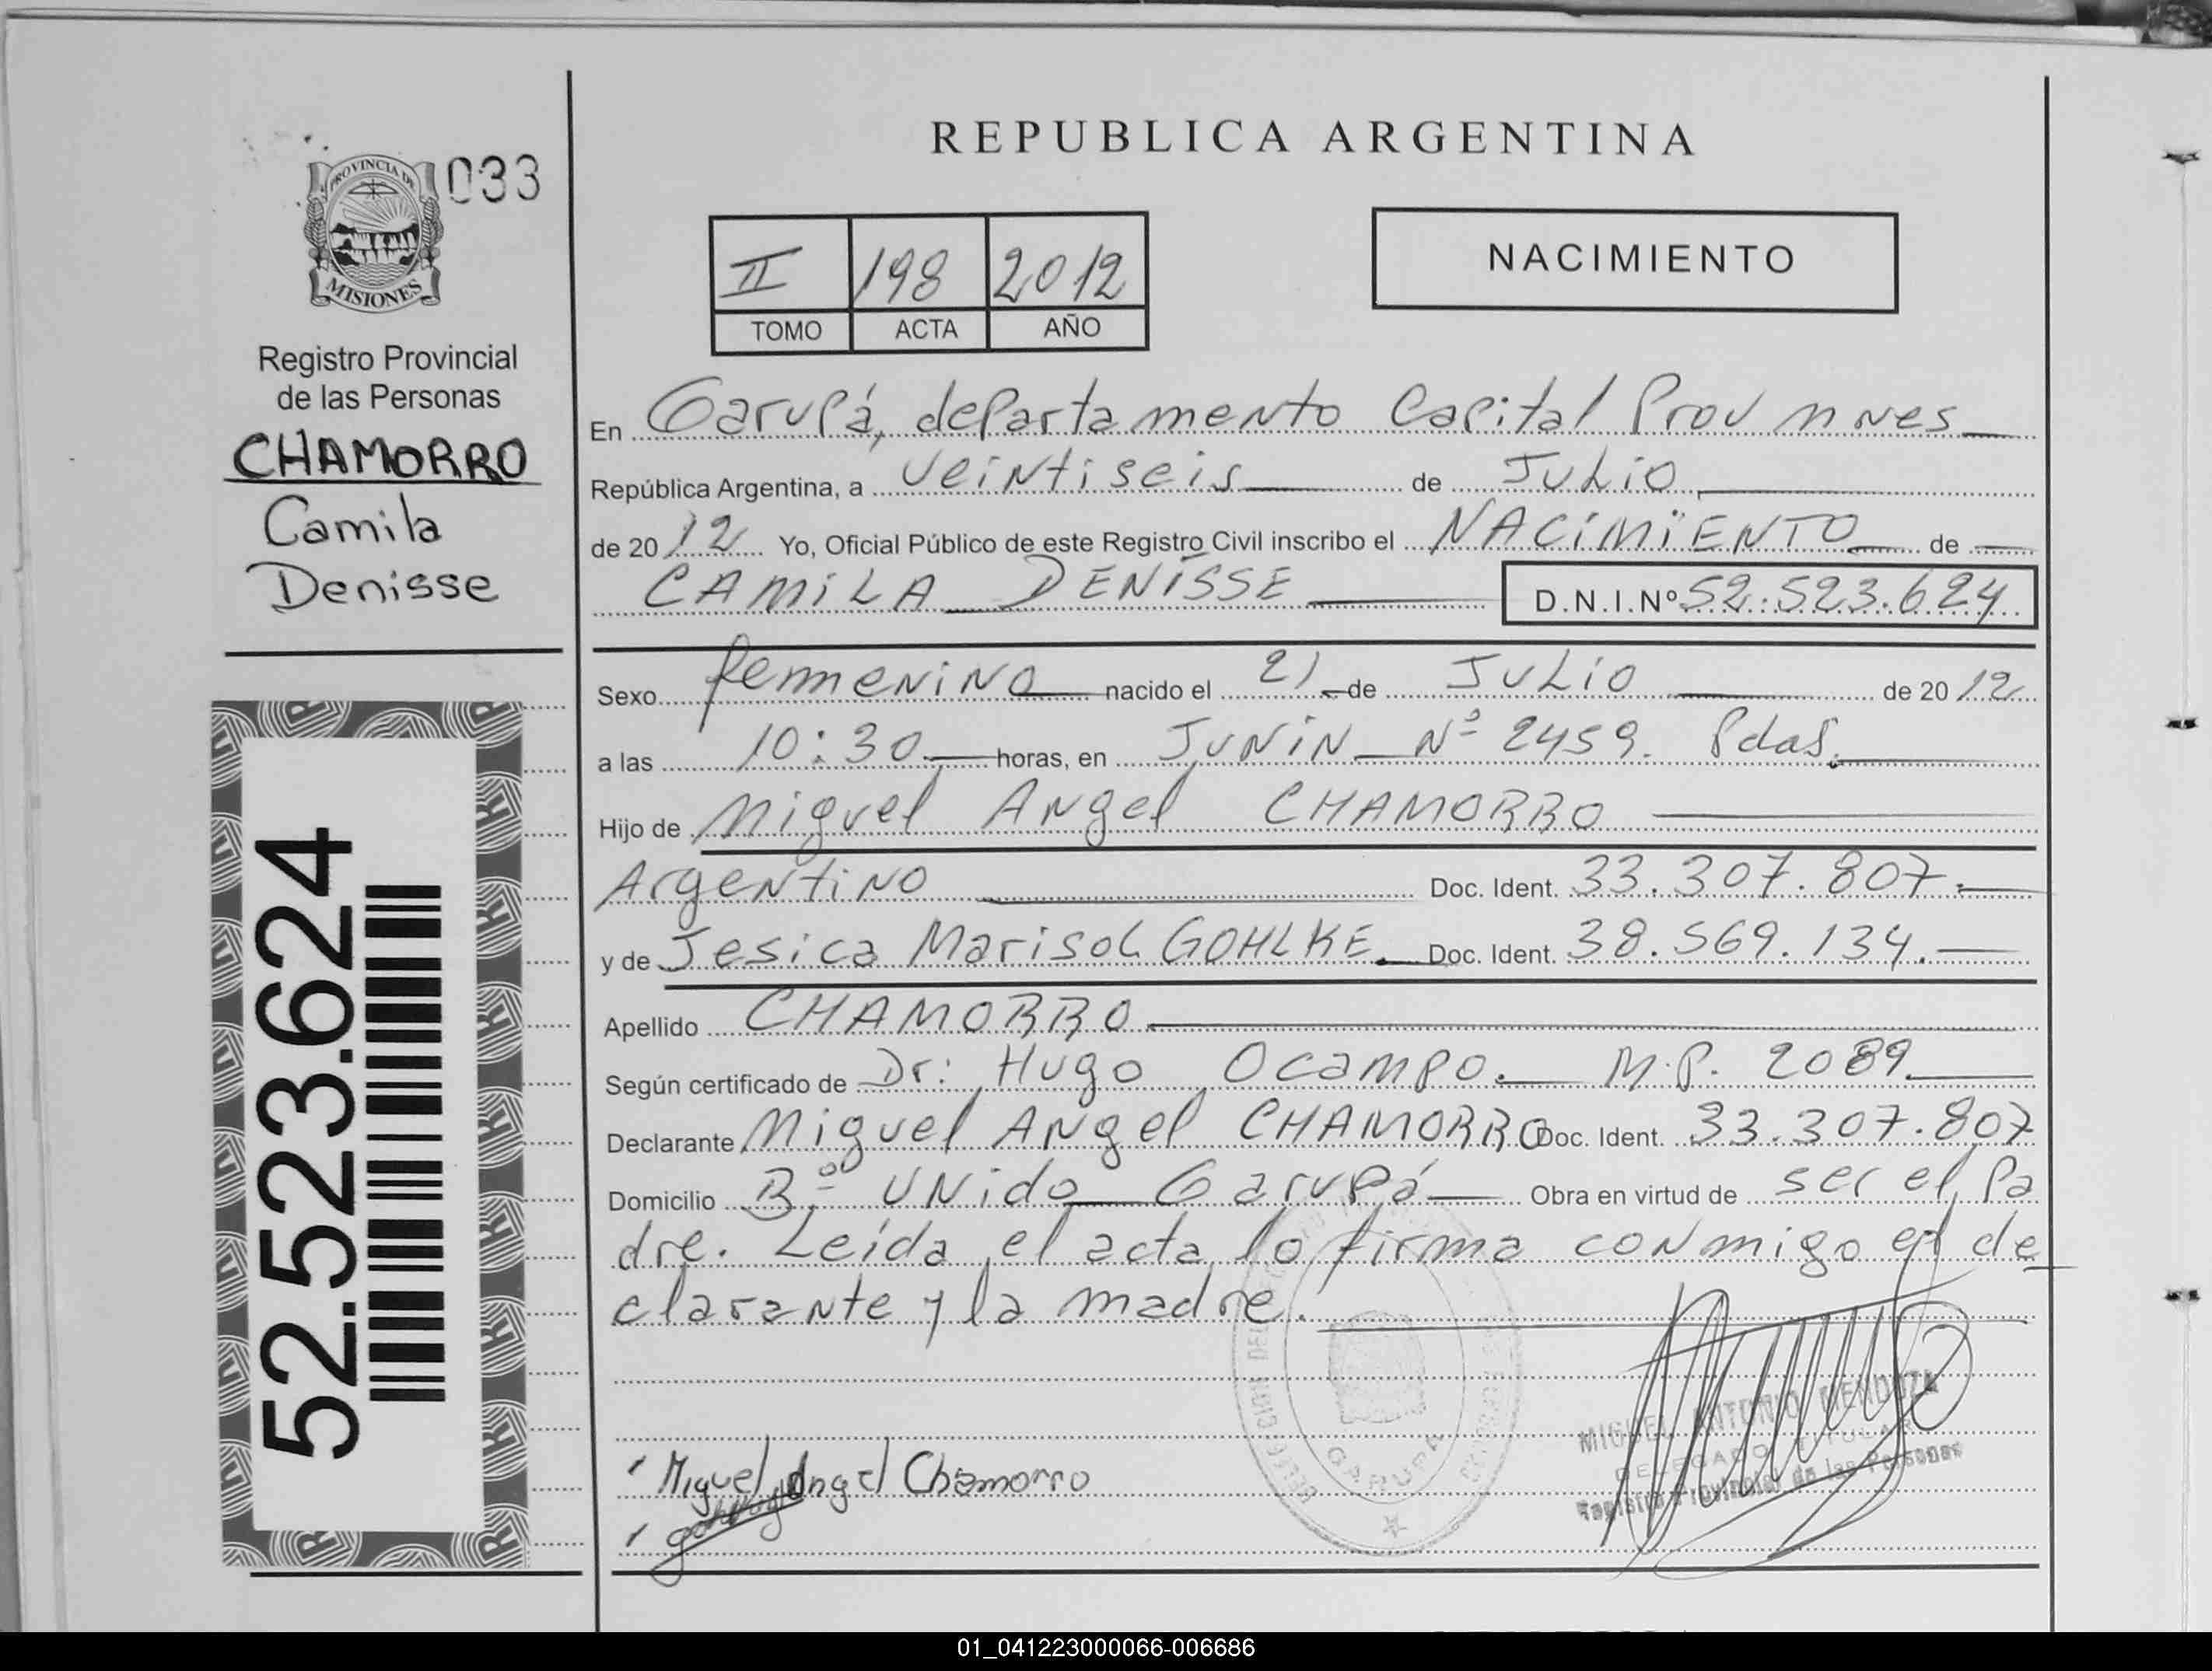 REPUBLICA ARGENTINA
PROVINCIA DE
MISIONES
033
Registro Provincial
de las Personas
CHAMORRO
Camila
Denisse
52.523.624
II 198 2012
TOMO ACTA AÑO
NACIMIENTO
En Garupá, departamento Capital Prov mnes
República Argentina, a veintiseis de Julio
de 2012 Yo, Oficial Público de este Registro Civil inscribo el NACIMIENTO de
CAMILA DENISSE D.N.I.Nº 52.523.624
Sexo femenino nacido el 21 de Julio de 2012
a las 10:30 horas, en Junin Nº 2459. Pdas.
Hijo de Miguel Angel CHAMORRO
Argentino Doc. Ident. 33.307.807.
y de Jesica Marisol GOHLKE. Doc. Ident. 38.569.134.
Apellido CHAMORRO
Según certificado de Dr: Hugo Ocampo. M.P. 2089
Declarante Miguel Angel CHAMORRO Doc. Ident. 33.307.807
Domicilio Bº Unido Garupá Obra en virtud de ser el Pa
dre. Leída el acta lo firma conmigo el de
clarante y la madre.
GARUPA
MIGUEL ANTONIO MENDOZA
DELEGADO TITULAR
Registro Provincial de las Personas
Miguel Angel Chamorro
01_041223000066-006686